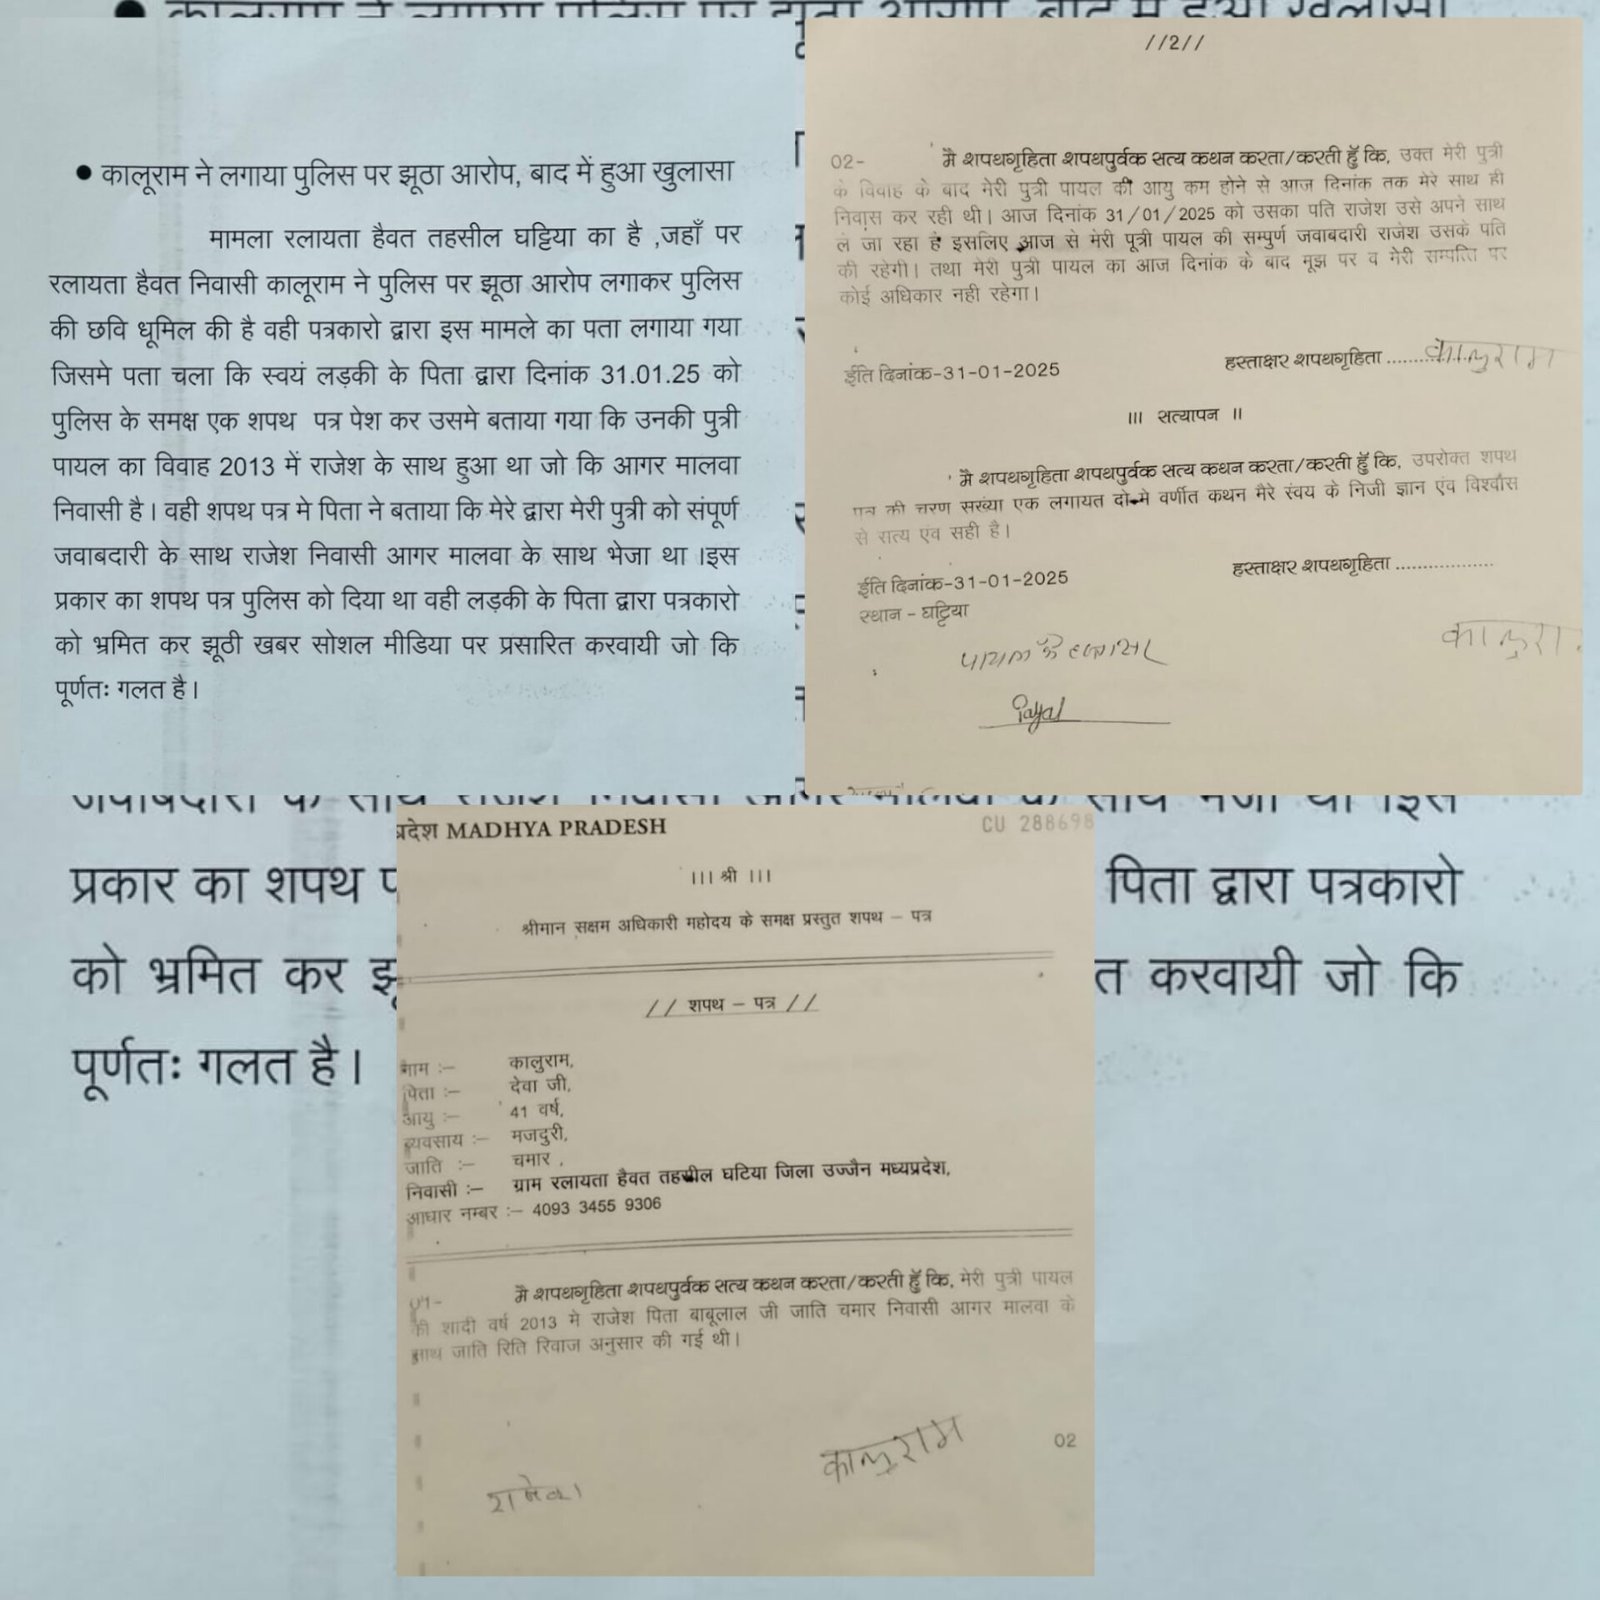 • कालूराम ने लगाया पुलिस पर झूठा आरोप, बाद में हुआ खुलासा
मामला रलायता हैवत तहसील घट्टिया का है ,जहाँ पर
रलायता हैवत निवासी कालूराम ने पुलिस पर झूठा आरोप लगाकर पुलिस
की छवि धूमिल की है वही पत्रकारो द्वारा इस मामले का पता लगाया गया
जिसमे पता चला कि स्वयं लड़की के पिता द्वारा दिनांक 31.01.25 को
पुलिस के समक्ष एक शपथ पत्र पेश कर उसमे बताया गया कि उनकी पुत्री
पायल का विवाह 2013 में राजेश के साथ हुआ था जो कि आगर मालवा
निवासी है। वही शपथ पत्र मे पिता ने बताया कि मेरे द्वारा मेरी पुत्री को संपूर्ण
जवाबदारी के साथ राजेश निवासी आगर मालवा के साथ भेजा था ।इस
प्रकार का शपथ पत्र पुलिस को दिया था वही लड़की के पिता द्वारा पत्रकारो
को भ्रमित कर झूठी खबर सोशल मीडिया पर प्रसारित करवायी जो कि
पूर्णतः गलत है।
//2//
02- मै शपथगृहिता शपथपुर्वक सत्य कथन करता/करती हुँ कि, उक्त मेरी पुत्री
के विवाह के बाद मेरी पुत्री पायल की आयु कम होने से आज दिनांक तक मेरे साथ ही
निवास कर रही थी। आज दिनांक 31/01/2025 को उसका पति राजेश उसे अपने साथ
ले जा रहा है इसलिए आज से मेरी पूत्री पायल की सम्पुर्ण जवाबदारी राजेश उसके पति
की रहेगी। तथा मेरी पुत्री पायल का आज दिनांक के बाद मूझ पर व मेरी सम्पत्ति पर
कोई अधिकार नही रहेगा।
ईति दिनांक-31-01-2025 हस्ताक्षर शपथगृहिता ........कालुराम
।।। सत्यापन ।।
मै शपथगृहिता शपथपुर्वक सत्य कथन करता/करती हुँ कि, उपरोक्त शपथ
पत्र की चरण सख्या एक लगायत दो मे वर्णीत कथन मैरे स्वंय के निजी ज्ञान एंव विश्वास
से सत्य एंव सही है।
ईति दिनांक-31-01-2025 हस्ताक्षर शपथगृहिता ..................
स्थान - घट्टिया
पायल के हस्ताक्षर
कालुरा
Payal
प्रकार का शपथ
पिता द्वारा पत्रकारो
को भ्रमित कर
त करवायी जो कि
पूर्णतः गलत है।
प्रदेश MADHYA PRADESH CU 288698
।।। श्री ।।।
श्रीमान सक्षम अधिकारी महोदय के समक्ष प्रस्तुत शपथ - पत्र
// शपथ - पत्र //
नाम :- कालुराम,
पिता :- देवा जी,
आयु :- 41 वर्ष,
व्यवसाय :- मजदुरी,
जाति :- चमार ,
निवासी :- ग्राम रलायता हैवत तहसील घटिया जिला उज्जैन मध्यप्रदेश,
आधार नम्बर :- 4093 3455 9306
01- मै शपथगृहिता शपथपुर्वक सत्य कथन करता/करती हुँ कि, मेरी पुत्री पायल
की शादी वर्ष 2013 मे राजेश पिता बाबूलाल जी जाति चमार निवासी आगर मालवा के
साथ जाति रिति रिवाज अनुसार की गई थी।
कालुराम
02